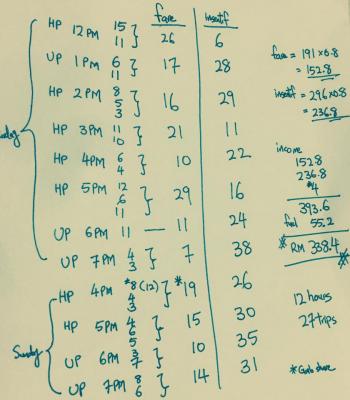 fare insentif
HP 12PM 15 11 } 26 6
UP 1PM 6 11 } 17 28
HP 2PM 8 5 3 } 16 29
HP 3PM 11 10 } 21 11
HP 4PM 6 4 } 10 22
HP 5PM 12 6 11 } 29 16
UP 6PM 11 — 11 24
UP 7PM 4 3 } 7 38
HP 4PM *8 (12) 4 3 } *19 26
HP 5PM 4 6 5 } 15 30
UP 6PM 3 7 } 10 35
UP 7PM 8 6 } 14 31
Sunday
fare = 191 x 0.8
= 152.8
insentif = 296 x 0.8
= 236.8
income
152.8
236.8
*4
393.6
fuel 55.2
* RM 338.4 *
12 hours
27 trips
*Grab share